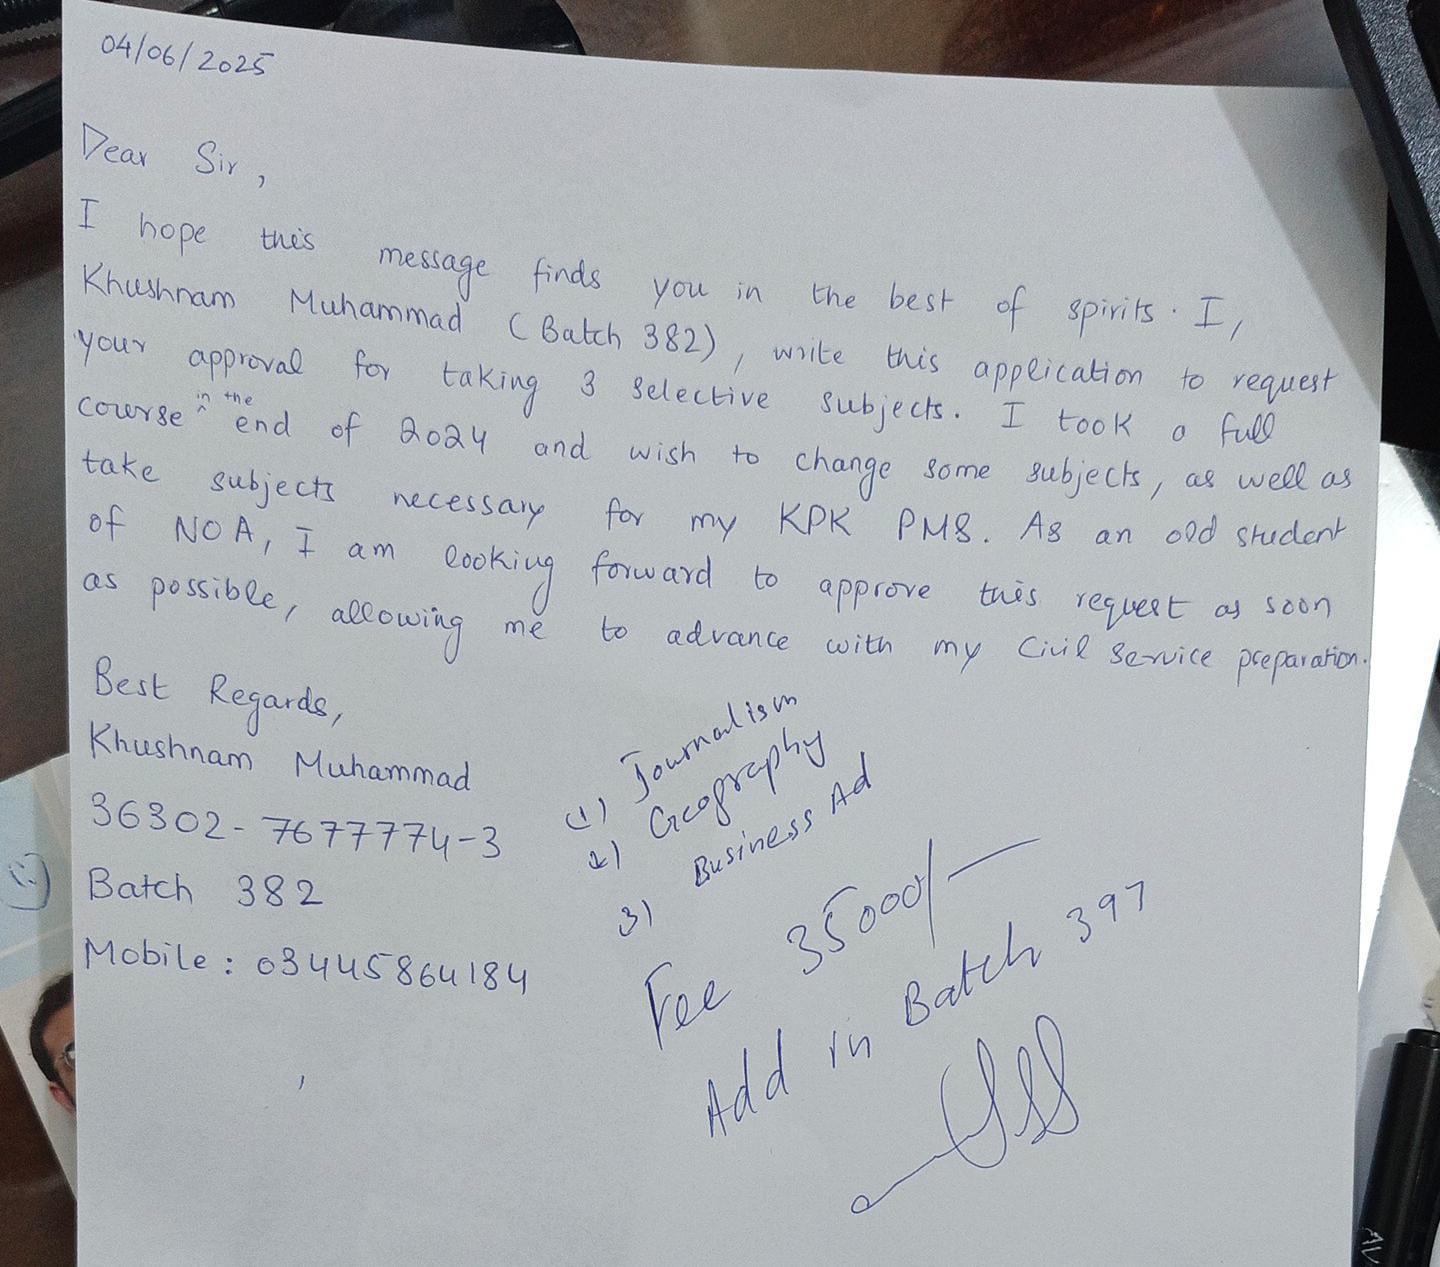 04/06/2025
Dear Sir,
I hope this message finds you in the best of spirits. I,
Khushnam Muhammad (Batch 382), write this application to request
your approval for taking 3 selective subjects. I took a full
course in the end of 2024 and wish to change some subjects, as well as
take subjects necessary for my KPK PMS. As an old student
of NOA, I am looking forward to approve this request as soon
as possible, allowing me to advance with my Civil Service preparation.
Best Regards,
Khushnam Muhammad
36302-7677774-3
Batch 382
Mobile: 03445864184
(1) Journalism
2) Geography
3) Business Ad
Fee 35000/-
Add in Batch 397